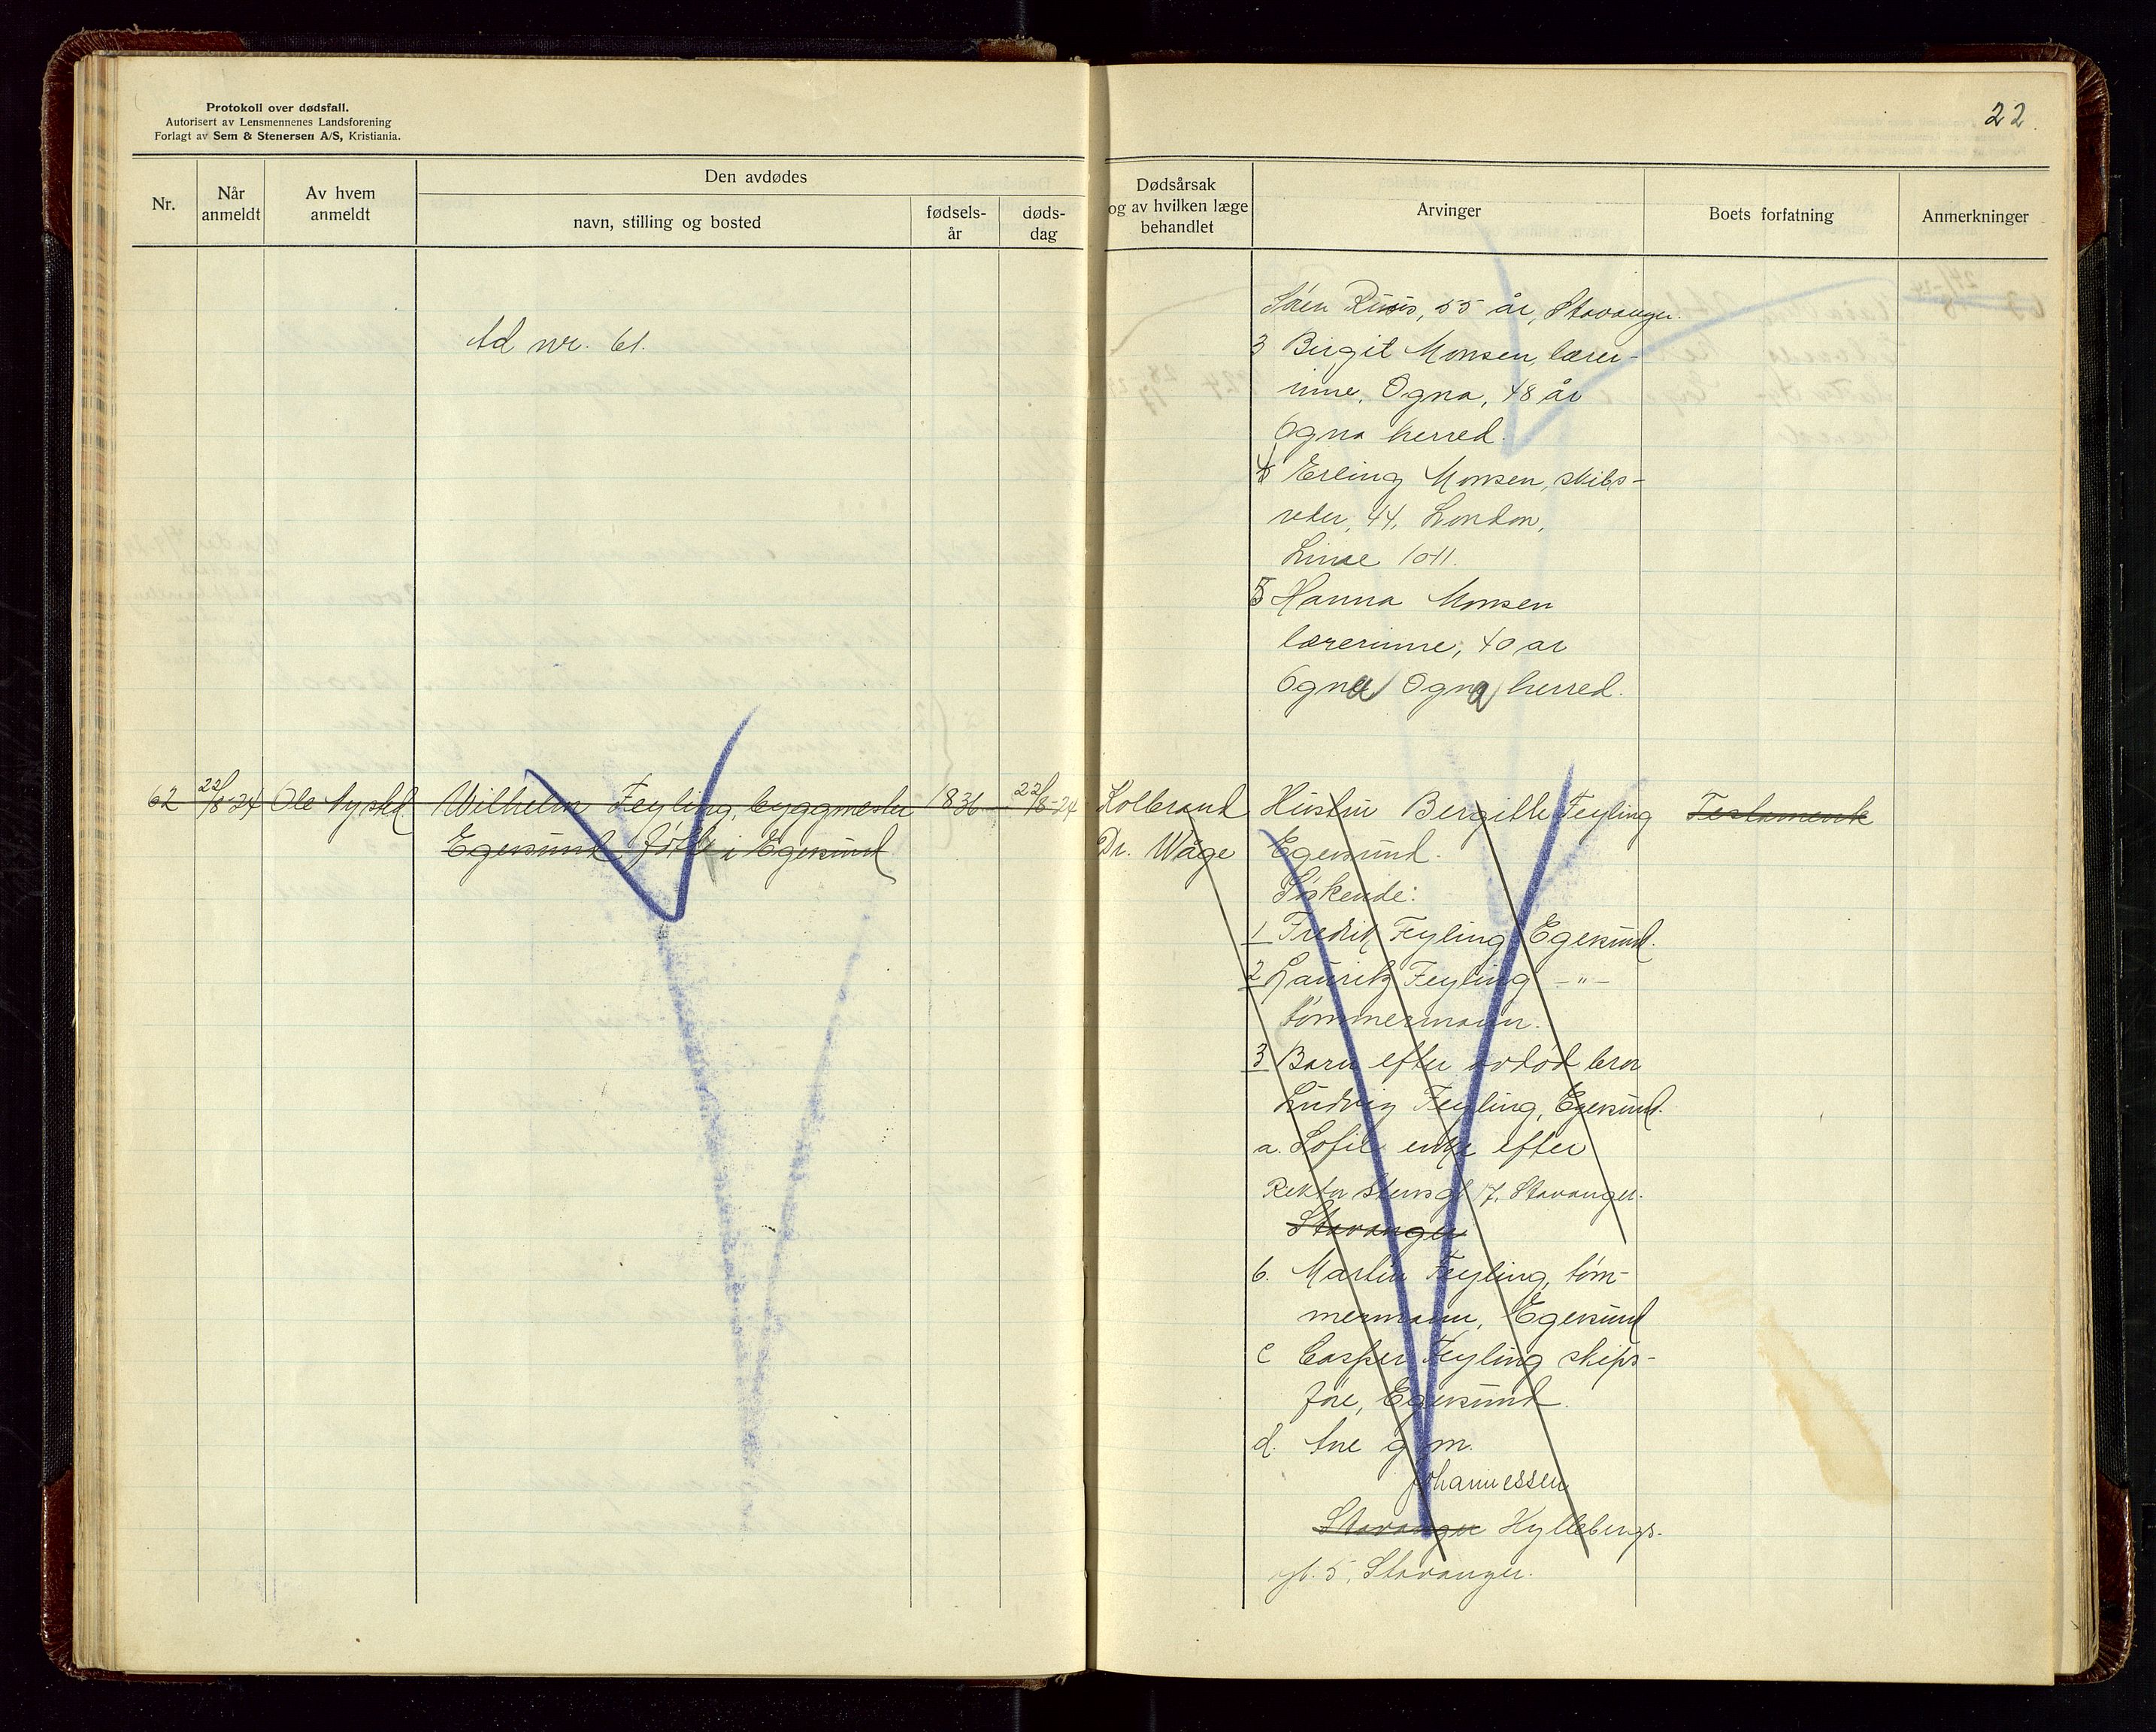 Protokoll over dødsfall.
Autorisert av Lensmennenes Landsforening
Forlagt av Sem & Stenersen A/S, Kristiania.
22
Nr.
Når anmeldt
Av hvem anmeldt
Den avdødes
navn, stilling og bosted
fødsels-år
døds-dag
Dødsårsak og av hvilken læge behandlet
Arvinger
Boets forfatning
Anmerkninger
Ad nr. 61.
55 år, Stavanger.
3 Birgit Monsen, lærer-
inne, Ogna, 48 år
Ogna herred.
4 Erling Monsen, skibs-
reder, 44, London,
1011.
5 Hanna Monsen
lærerinne, 40 år
Ogna Ogna herred.
62 22/8-24 Ole Nysted Wilhelm Feyling, byggmester 1836 22/8-24 Koldbrand Hustru Bergitte Feyling Testamente
Egersund født i Egersund Dr. Wåge Egersund.
Søskende:
1 Fredrik Feyling Egersund.
2 Lauritz Feyling -"-
tømmermann.
3 Barn efter avdød bror
Ludvig Feyling, Egersund.
a. Sofie enke efter
Rektor Stensgt 17, Stavanger.
Stavanger
b. Martin Feyling, tøm-
mermann, Egersund
c Casper Feyling skips-
føre, Egersund.
d. Ane g m.
Johannessen
Stavanger Hyllebergs-
gt. 5, Stavanger.